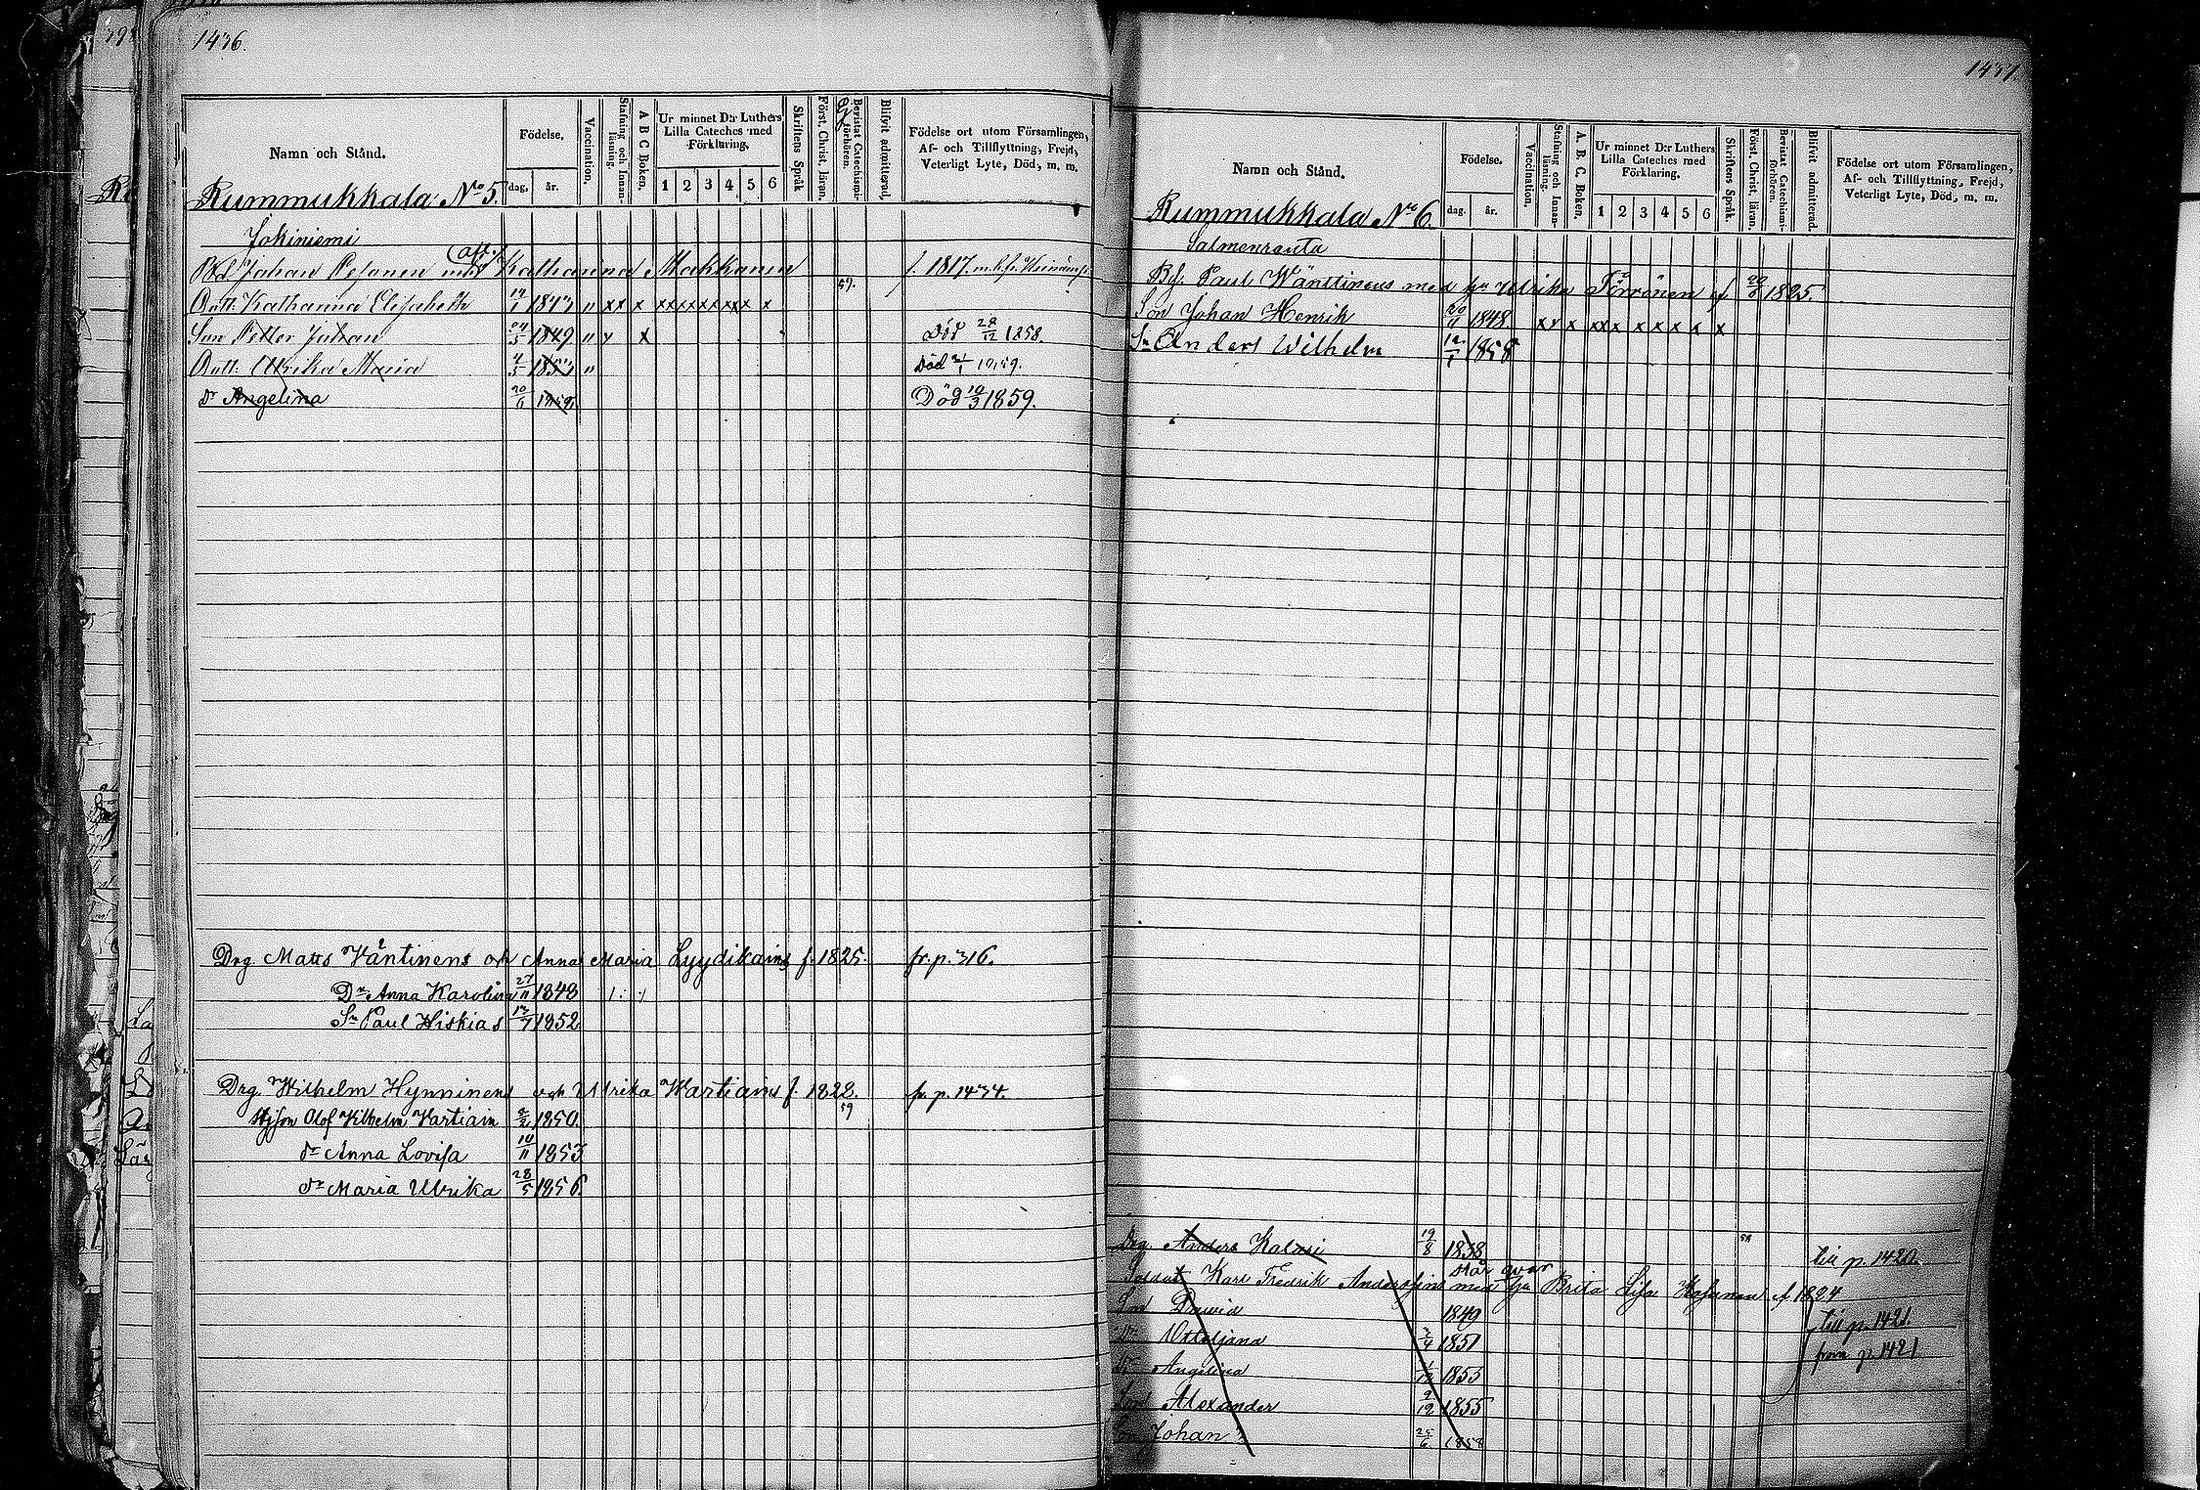 1436.
Namn och Stånd.
Födelse.
dag, år.
Vaccination.
Stafning och Innan-läsning.
A B C Boken.
Ur minnet D:r Luthers Lilla Cateches med Förklaring.
1 2 3 4 5 6
Skriftens Språk
Först. Christ. läran.
Bevistat Catechismi-förhören.
Blifvit admitterad,
Födelse ort utom Församlingen, Af- och Tillflyttning, Frejd, Veterligt Lyte, Död, m. m.
Rummukkala No 5.
Jokiniemi
Johan Pesonen Katharina Makkonen f. 1817.
59.
Dott. Katharina Elisabeth
Son Petter Johan 1849 " Död 28/12 1858.
Dott. Ulrika Maria 4/3 " Död 1859.
dr Angelina 20/6 Död 10/3 1859.
Drg. Matts Väntinens och Anna Maria Lyydikain f. 1825. fr. p. 316.
Dr Anna Karolina 27/11 1848
Sn Paul Hiskias 1852
Drg. Wilhelm Hynninens och Ulrika Wartiains f. 1828. fr. p. 1434.
59
Olof Vilhelm Vartiain 1850.
dr Anna Lovisa 10/11 1853
dr Maria Ulrika 28/5 1856.
1437.
Namn och Stånd.
Födelse.
dag. år.
Vaccination.
Stafning och Innan-läsning.
A. B. C. Boken.
Ur minnet D:r Luthers Lilla Cateches med Förklaring.
1 2 3 4 5 6
Skriftens Språk.
Först. Christ. läran.
Bevistat Catechismi-förhören.
Blifvit admitterad.
Födelse ort utom Församlingen, Af- och Tillflyttning, Frejd, Veterligt Lyte, Död, m. m.
Rummukkala No 6.
Salmenranta
Paul Wänttinens med Ulrika Törrönen f. 1825.
Son Johan Henrik 20/11 1848
Sn Anders Wilhelm 1858
Drg Anders Kalmi 19/8 1838 till p. 1420.
står qvar
Soldat Karl Fredrik Anderssins med Brita Lisa f. 1824
Son David 1849 till p. 1421.
1851 från p. 1421
Dr Angelina 1855
Son Alexander 9/12 1855
Son Johan 25/6 1858